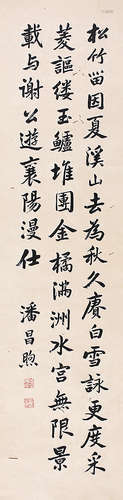 松竹留因夏溪山去為秋久賡白雪詠更度采
菱謳縷玉鱸堆團金橘滿洲水宮無限景
載与謝公遊襄陽漫仕
潘昌煦